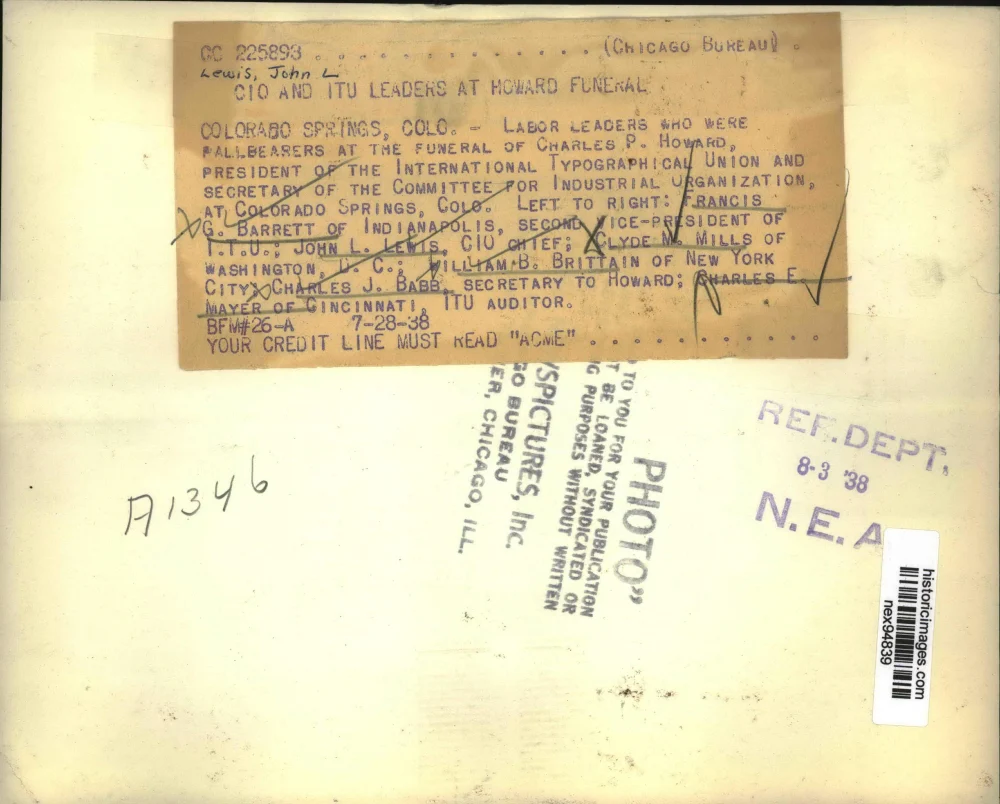 CC 225893 . . . . . . . . . . . . . . (CHICAGO BUREAU) .
Lewis, John L
CIO AND ITU LEADERS AT HOWARD FUNERAL
COLORADO SPRINGS, COLO. - LABOR LEADERS WHO WERE
PALLBEARERS AT THE FUNERAL OF CHARLES P. HOWARD,
PRESIDENT OF THE INTERNATIONAL TYPOGRAPHICAL UNION AND
SECRETARY OF THE COMMITTEE FOR INDUSTRIAL ORGANIZATION,
AT COLORADO SPRINGS, COLO. LEFT TO RIGHT: FRANCIS
G. BARRETT OF INDIANAPOLIS, SECOND VICE-PRESIDENT OF
I.T.U.; JOHN L. LEWIS, CIO CHIEF; CLYDE M. MILLS OF
WASHINGTON, D. C.; WILLIAM B. BRITTAIN OF NEW YORK
CITY; CHARLES J. BABB, SECRETARY TO HOWARD; CHARLES E.
MAYER OF CINCINNATI, ITU AUDITOR.
BFM#26-A 7-28-38
YOUR CREDIT LINE MUST READ "ACME" . . . . . . . . . . .
PHOTO"
TO YOU FOR YOUR PUBLICATION
T BE LOANED, SYNDICATED OR
G PURPOSES WITHOUT WRITTEN
/SPICTURES, Inc.
GO BUREAU
ER, CHICAGO, ILL.
REF. DEPT.
8-3 '38
N.E.A
A1346
historicimages.com
nex94839